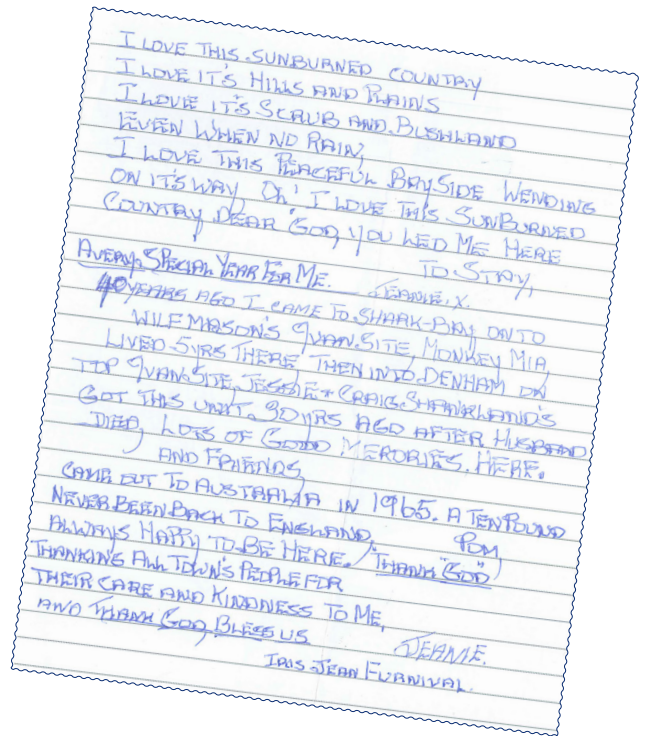 I LOVE THIS SUNBURNED COUNTRY
I LOVE IT'S HILLS AND PLAINS
I LOVE IT'S SCRUB AND BUSHLAND
EVEN WHEN NO RAIN,
I LOVE THIS PEACEFUL BAYSIDE WENDING
ON IT'S WAY, OH! I LOVE THIS SUNBURNED
COUNTRY DEAR "GOD, YOU LED ME HERE
TO STAY,
A VERY SPECIAL YEAR FOR ME. JEANIE. X.
40 YEARS AGO I CAME TO SHARK-BAY ONTO
WILF MASON'S VAN.SITE, MONKEY MIA,
LIVED 5YRS THERE THEN INTO DENHAM ON
TOP VAN.SITE, JESSIE + CRAIG. SHANKLAND'S
GOT THIS UNIT. 30YRS AGO AFTER HUSBAND
DIED, LOTS OF GOOD MERORIES. HERE.
AND FRIENDS,
CAME OUT TO AUSTRALIA IN 1965. A TEN POUND
POM,
NEVER BEEN BACK TO ENGLAND,
ALWAYS HAPPY TO BE HERE. "THANK "GOD"
THANKING ALL TOWN'S PEOPLE FOR
THEIR CARE AND KINDNESS TO ME,
AND THANK GOD, BLESS US
JEANIE.
IRIS-JEAN FURNIVAL.